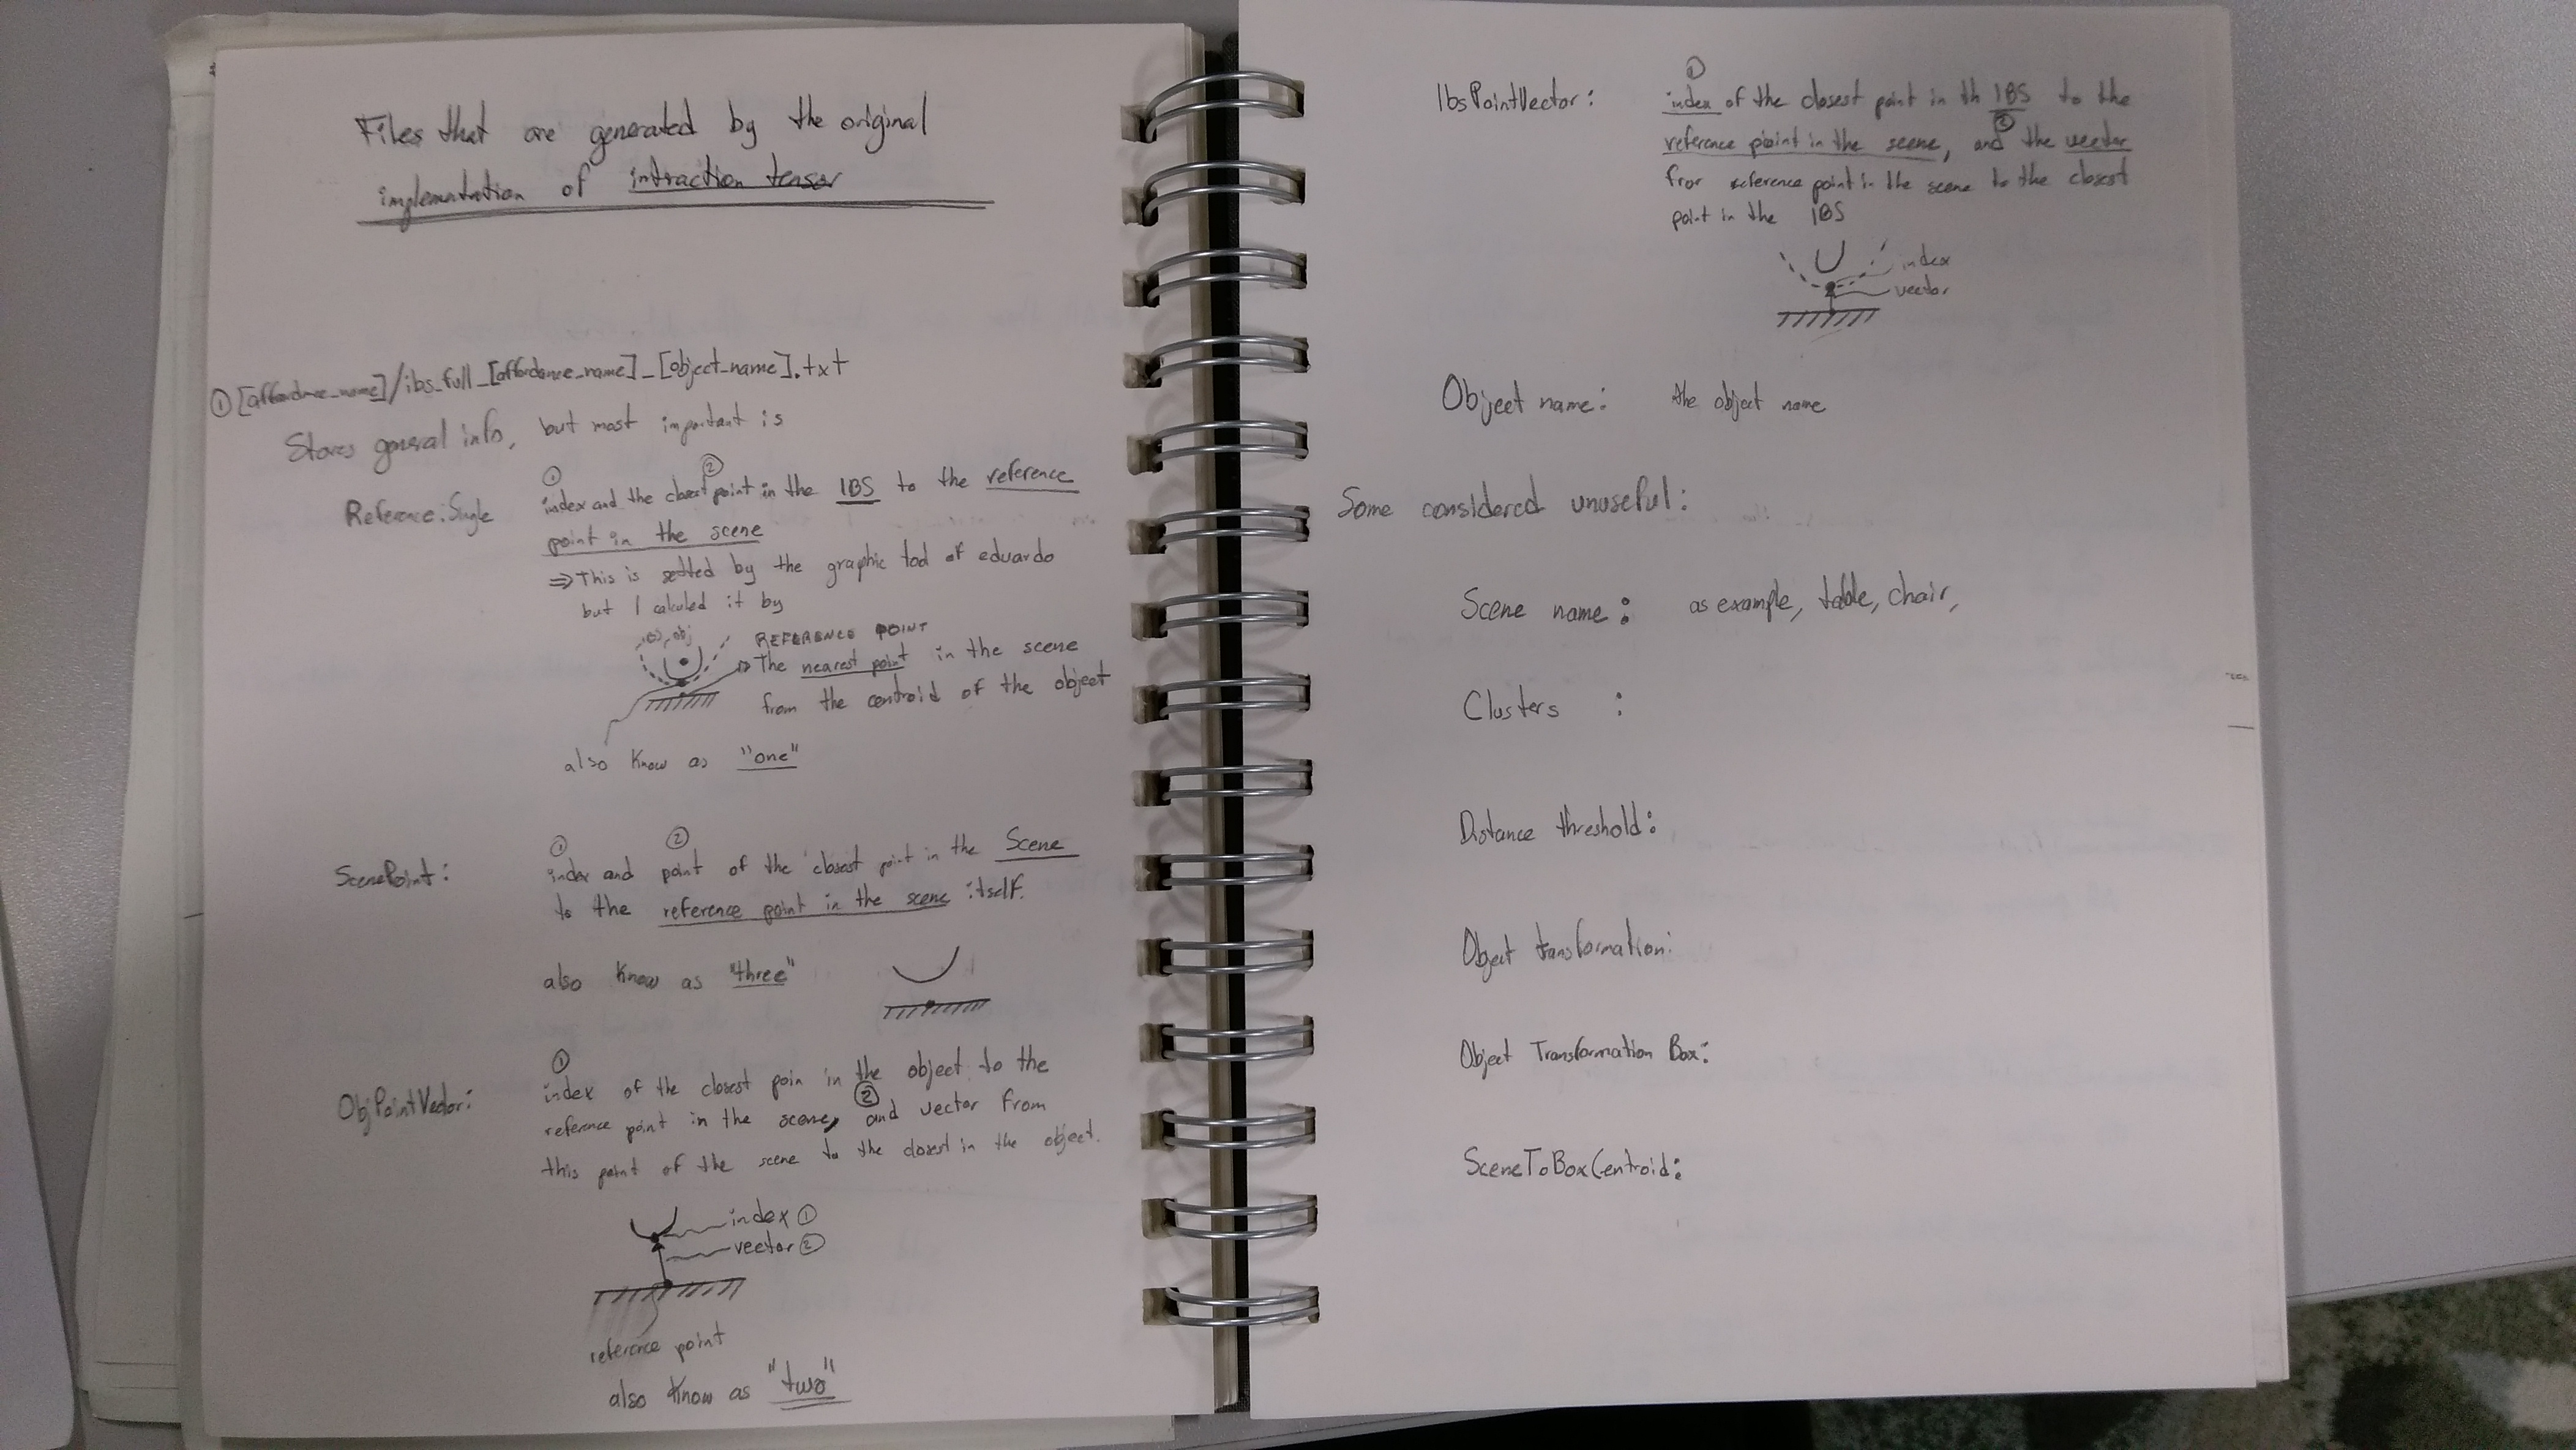 Files that are generated by the original
implemntation of intraction tensor
① [affordance_name]/ibs_full_[affordance_name]_[object_name].txt
Stores general info, but most important is
Reference:Single
① ②
index and the closest point in the IBS to the reference
point in the scene
⇒ This is setted by the graphic tool of eduardo
but I calculed it by
IBS, obj
REFERENCE POINT
The nearest point in the scene
from the centroid of the object
also Know as "one"
ScenePoint:
① ②
index and point of the closest point in the Scene
to the reference point in the scene itself.
also Know as "three"
ObjPointVector:
①
index of the closest poin in the object to the
reference point in the scene, ② and vector from
this point of the scene to the closest in the object.
index ①
vector ②
reference point
also Know as "two"
IbsPointVector:
①
index of the closest point in th IBS to the
reference point in the scene, ② and the vector
fror reference point in the scene to the closest
point in the IBS
index
vector
Object name: the object name
Some considered unuseful:
Scene name: as example, table, chair,
Clusters :
Distance threshold:
Object transformation:
Object Transformation Box:
SceneToBoxCentroid: